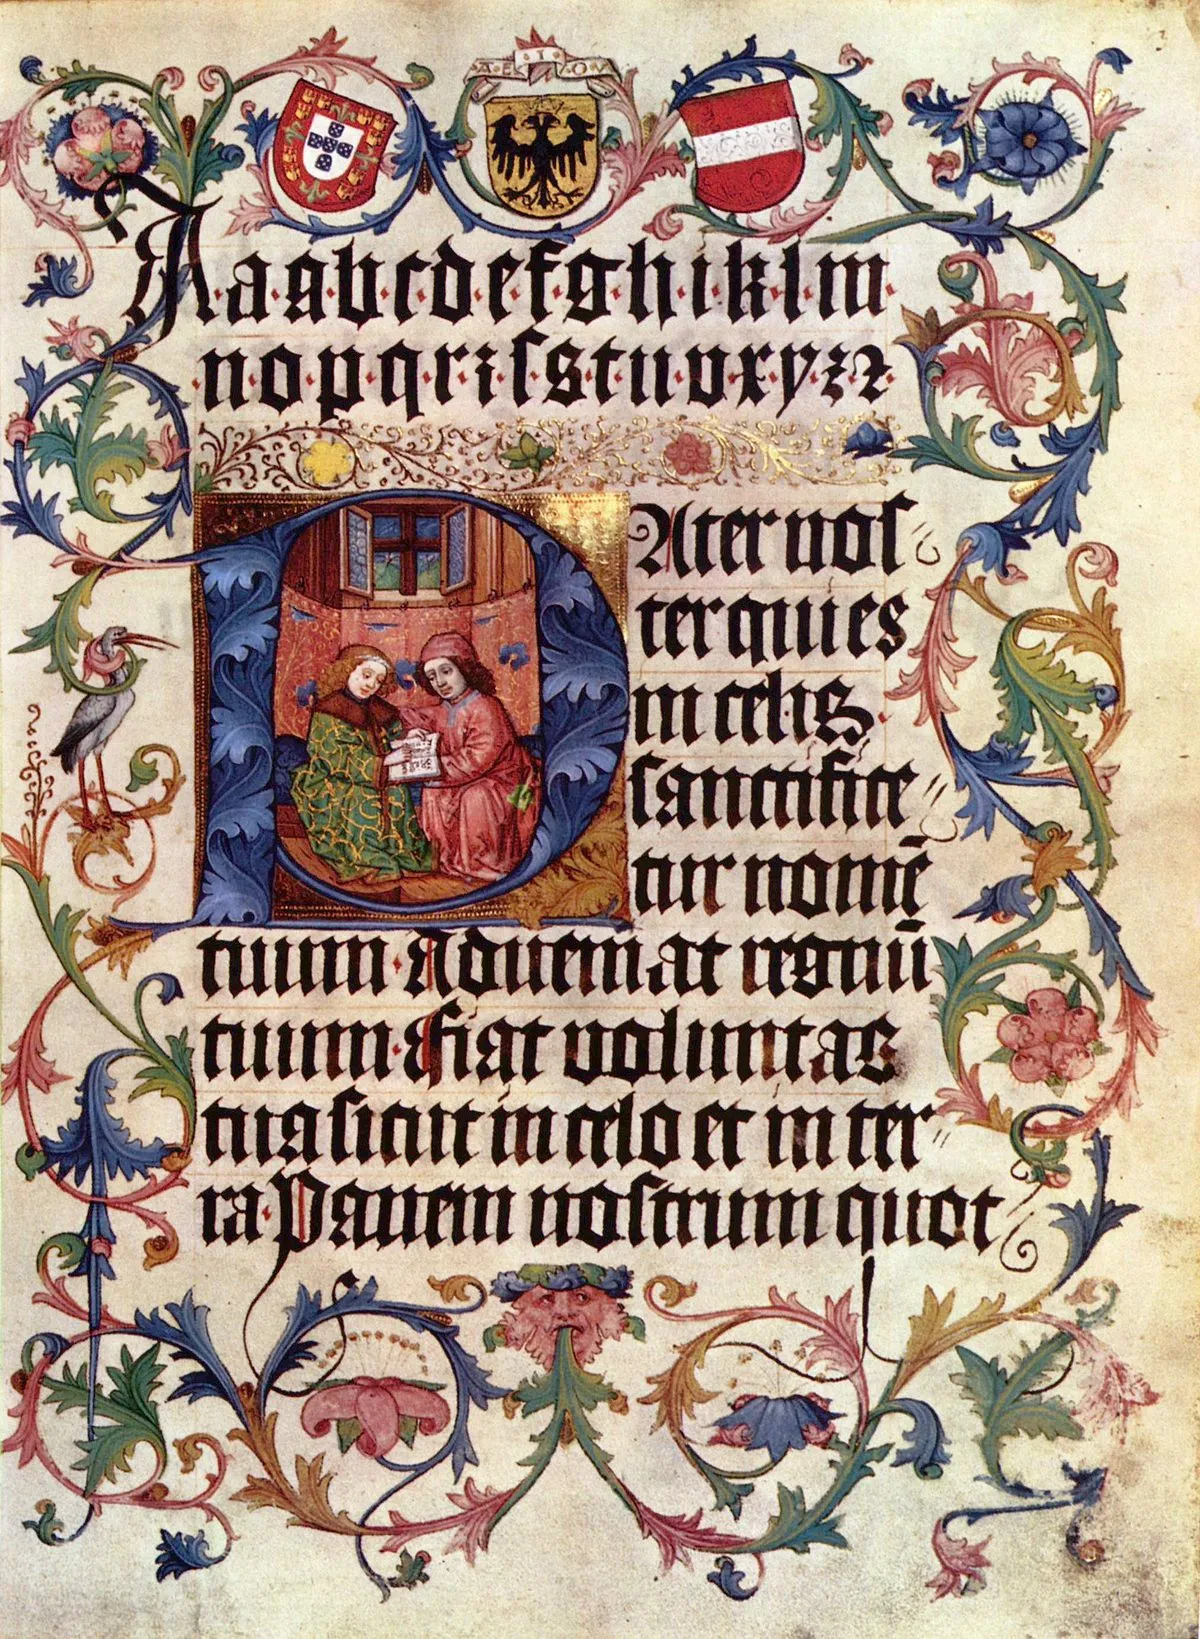 A·E·I·O
A a·a·b·c·d·e·f·g·h·i·k·l·m·
·n·o·p·q·r·ꝛ·ſ·s·t·u·v·x·y·z·ꝛ
PAter noſ
ter qui es
in celis·
ſanctifice〃
tur nomē
tuum· Adueniat regnū
tuum· Fiat voluntas
tua ſicut in celo et in ter〃
ra· Panem noſtrum quot